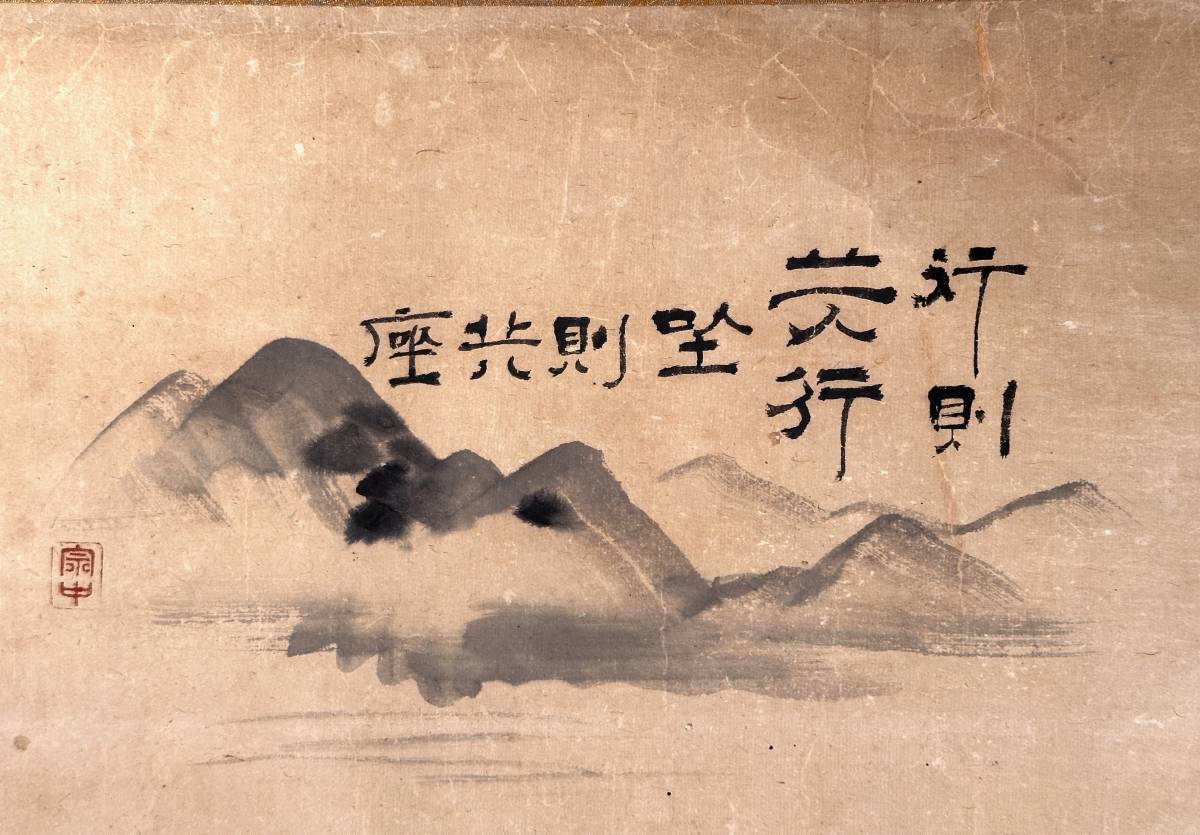 行則
共行
坐則共座
宗中